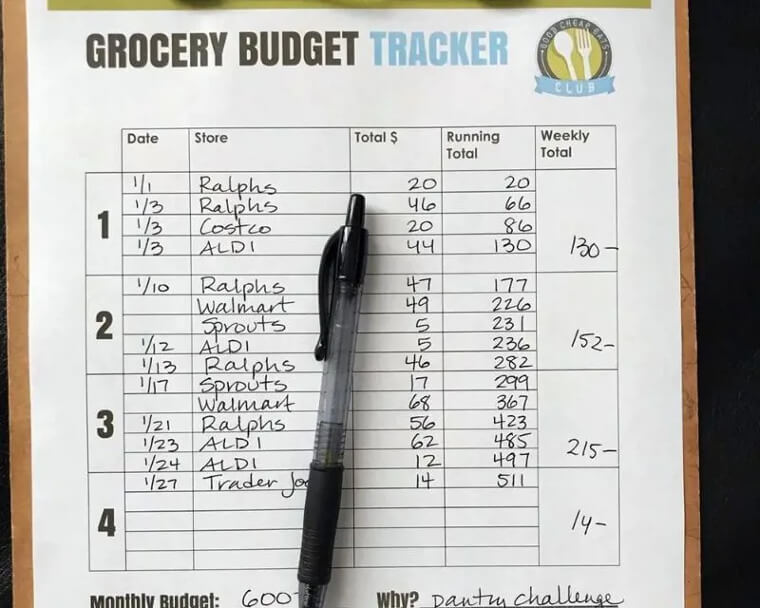 GROCERY BUDGET TRACKER
GOOD CHEAP EATS
CLUB
Date Store Total $ Running Total Weekly Total
1
1/1 Ralphs 20 20
1/3 Ralphs 46 66
1/3 Costco 20 86
1/3 ALDI 44 130 130-
2
1/10 Ralphs 47 177
Walmart 49 226
Sprouts 5 231
1/12 ALDI 5 236 152-
1/13 Ralphs 46 282
3
1/17 Sprouts 17 299
Walmart 68 367
1/21 Ralphs 56 423
1/23 ALDI 62 485 215-
1/24 ALDI 12 497
4
1/27 Trader Joe 14 511 14-
Monthly Budget: 600- Why? Pantry challenge